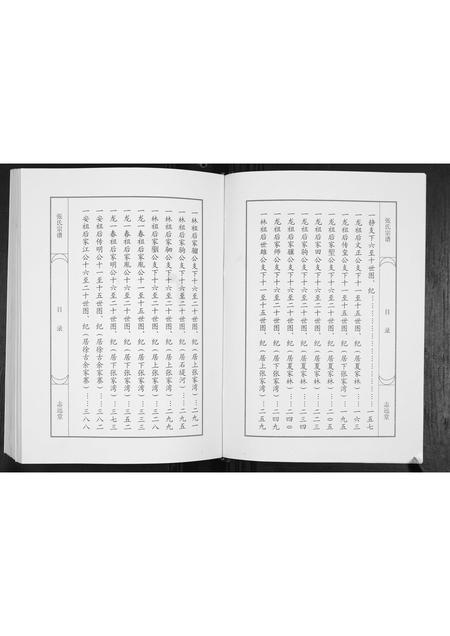 张氏宗谱
目录
志远堂
一静支下六至十世图、纪……一五七
一龙祖后文正公支下十一至十五世图、纪（居夏家林）……一六三
一龙祖后传宝公支下十一至十五世图、纪（居下张家湾）……一九五
一龙祖后家塱公支下十六至二十世图、纪（居夏家林）……二〇五
一龙祖后家田公支下十六至二十世图、纪（居夏家林）……二二三
一龙祖后家驹公支下十六至二十世图、纪（居夏家林）……二三四
一龙祖后家骥公支下十六至二十世图、纪（居夏家林）……二四〇
一龙祖后家师公支下十六至二十世图、纪（居下张家湾）……二四九
一林祖后世雄公支下十一至十五世图、纪（居上张家湾）……二五九
一林祖后家 公支下十六至二十世图、纪（居上张家湾）……二九一
一林祖后家驹公支下十六至二十世图、纪（居石堤河）……二九九
一林祖后家 公支下十六至二十世图、纪（居上张家湾）……二九九
一林祖后家 公支下十六至二十世图、纪（居上张家湾）……三二八
一龙一春祖后家胤公十一至十五世图、纪（居下张家湾）……三三三
一龙一春祖后家胤公十六至二十世图、纪（居下张家湾）……三五二
一龙一春祖后家明公十六至二十世图、纪（居下张家湾）……三七三
一安祖后传明公十一至十五世图、纪（居徐古余家寨）……三八一
一安祖后家江公十六至二十世图、纪（居徐古余家寨）……三八八
张氏宗谱
目录
志远堂